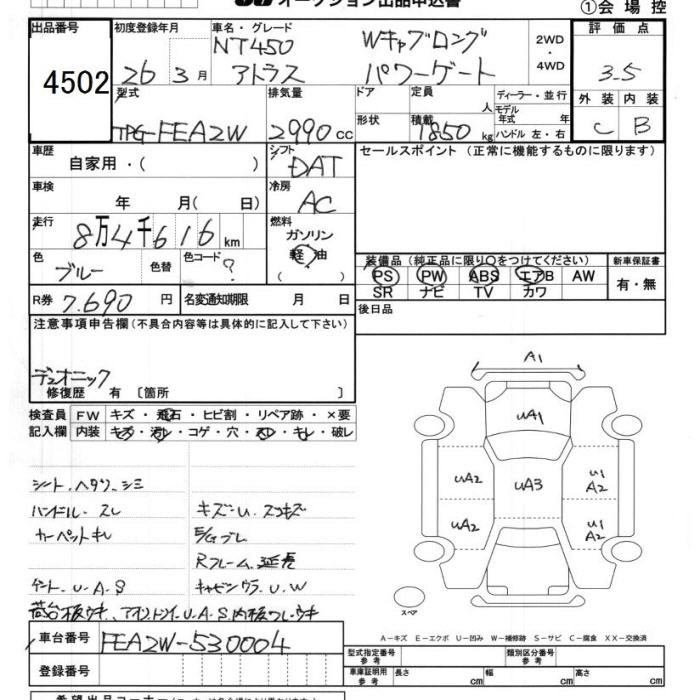 オークション出品申込書
①会場控
出品番号 初度登録年月 車名・グレード 評価点
4502 26 3月 NT450 アトラス Wキャブロング パワーゲート 2WD・4WD 3.5
型式 排気量 ドア 定員 人 ディーラー・並行 外装 内装
TPG-FEA2W 2990cc 形状 積載 1850kg モデル年式 年 ハンドル 左・右 C B
車歴 自家用・( ) シフト DAT セールスポイント (正常に機能するものに限ります)
車検 年 月( 日) 冷房 AC
走行 8万4千616km 燃料 ガソリン
軽油
( )
色 ブルー 色替 色コード ?
装備品(純正品に限り○をつけてください) 新車保証書
PS PW ABS エアB AW 有・無
SR ナビ TV カワ
R券 7,690円 名変通知期限 月 日 後日品
注意事項申告欄(不具合内容等は具体的に記入して下さい)
デュオニック
修復歴 有 〔箇所 〕
検査員 FW キズ・飛石・ヒビ割・リペア跡・×要
記入欄 内装 キズ・汚レ・コゲ・穴・スレ・キレ・破レ
シート、ヘタリ、シミ
ハンドル・スレ キズ・U、スリキズ
カーペットキレ E/Gブレ
Rフレーム、延長
ゲート、U、A、S キャビンウラ、U、W
荷台板ウキ、U、A、S、内板ワレ・ウキ
A1
uA1
uA2 uA3 u1 A2
uA2 u1 A2
スペア
A-キズ E-エクボ U-凹み W-補修跡 S-サビ C-腐食 XX-交換済
車台番号 FEA2W-530004
登録番号
型式指定番号 参考 類別区分番号 参考
車庫証明用 参考 長さ cm 幅 cm 高さ cm